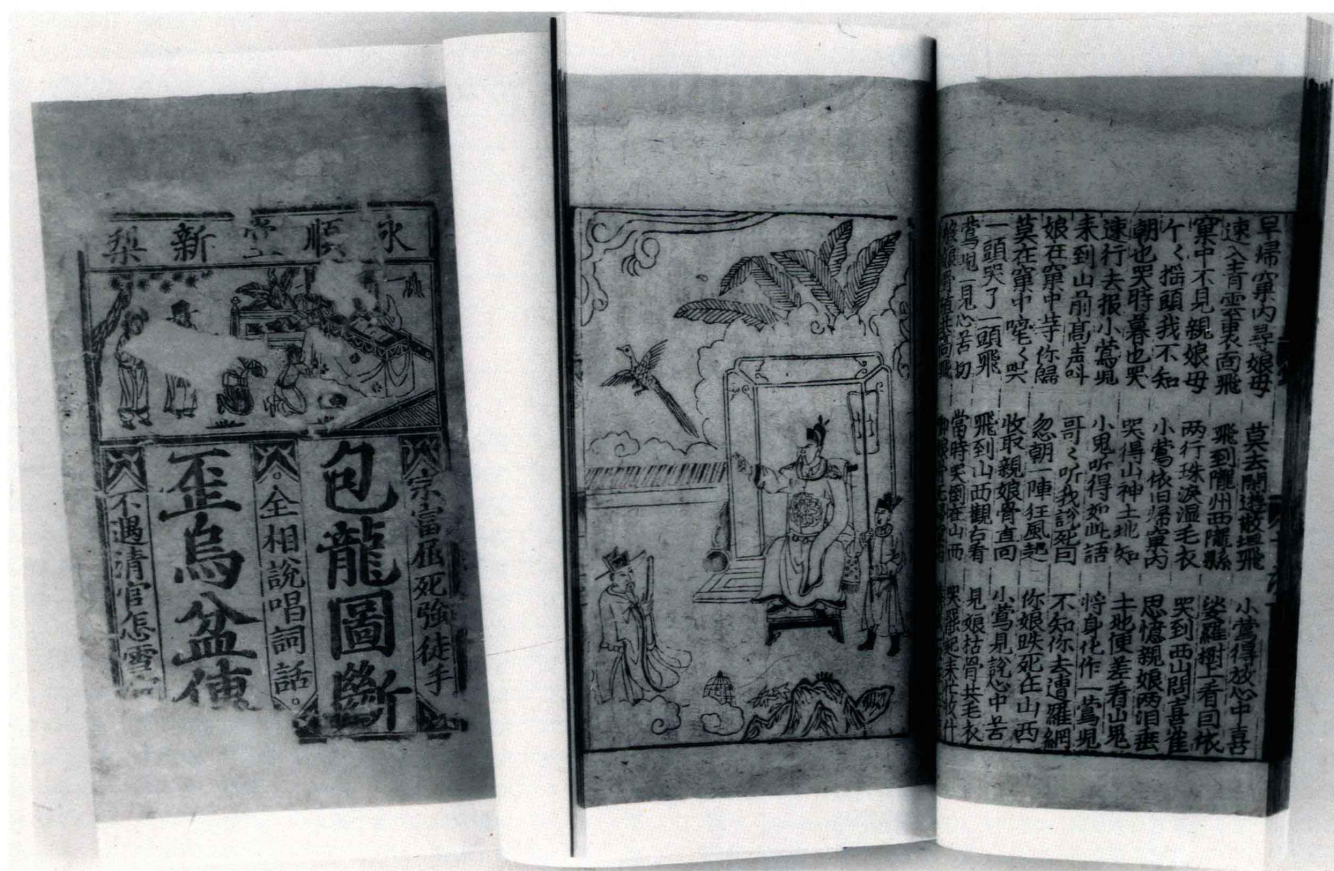 永順堂新梨
宗富屈死強徒手
包龍圖斷
全相說唱詞話
歪烏盆傳
不遇清官怎雪
早歸窠内尋娘母 莫去閑遊散飛 小鶯得放心中喜
速入青雲裏面飛 飛到隴州西隴縣 娑羅樹上看回依
窠中不見親娘母 两行珠淚濕毛衣 哭到西山問喜雀
个々摇頭我不知 小鶯依旧歸窠内 思憶親娘两泪垂
朝也哭時暮也哭 哭得山神土地知 土地便差看山鬼
速行去报小鶯児 小鬼听得如此語 將身化作一鶯児
来到山前高声叫 哥々听我說死曰 不知你去遭羅網
娘在窠中等你歸 忽朝一陣狂風起 你娘跌死在山西
莫在窠中哭 收取親娘骨直向 小鶯見說心中苦
一頭哭了一頭飛 飛到山西觀占看 見娘枯骨共毛衣
鶯児一見心苦切 當時哭倒在山西 哭起来作